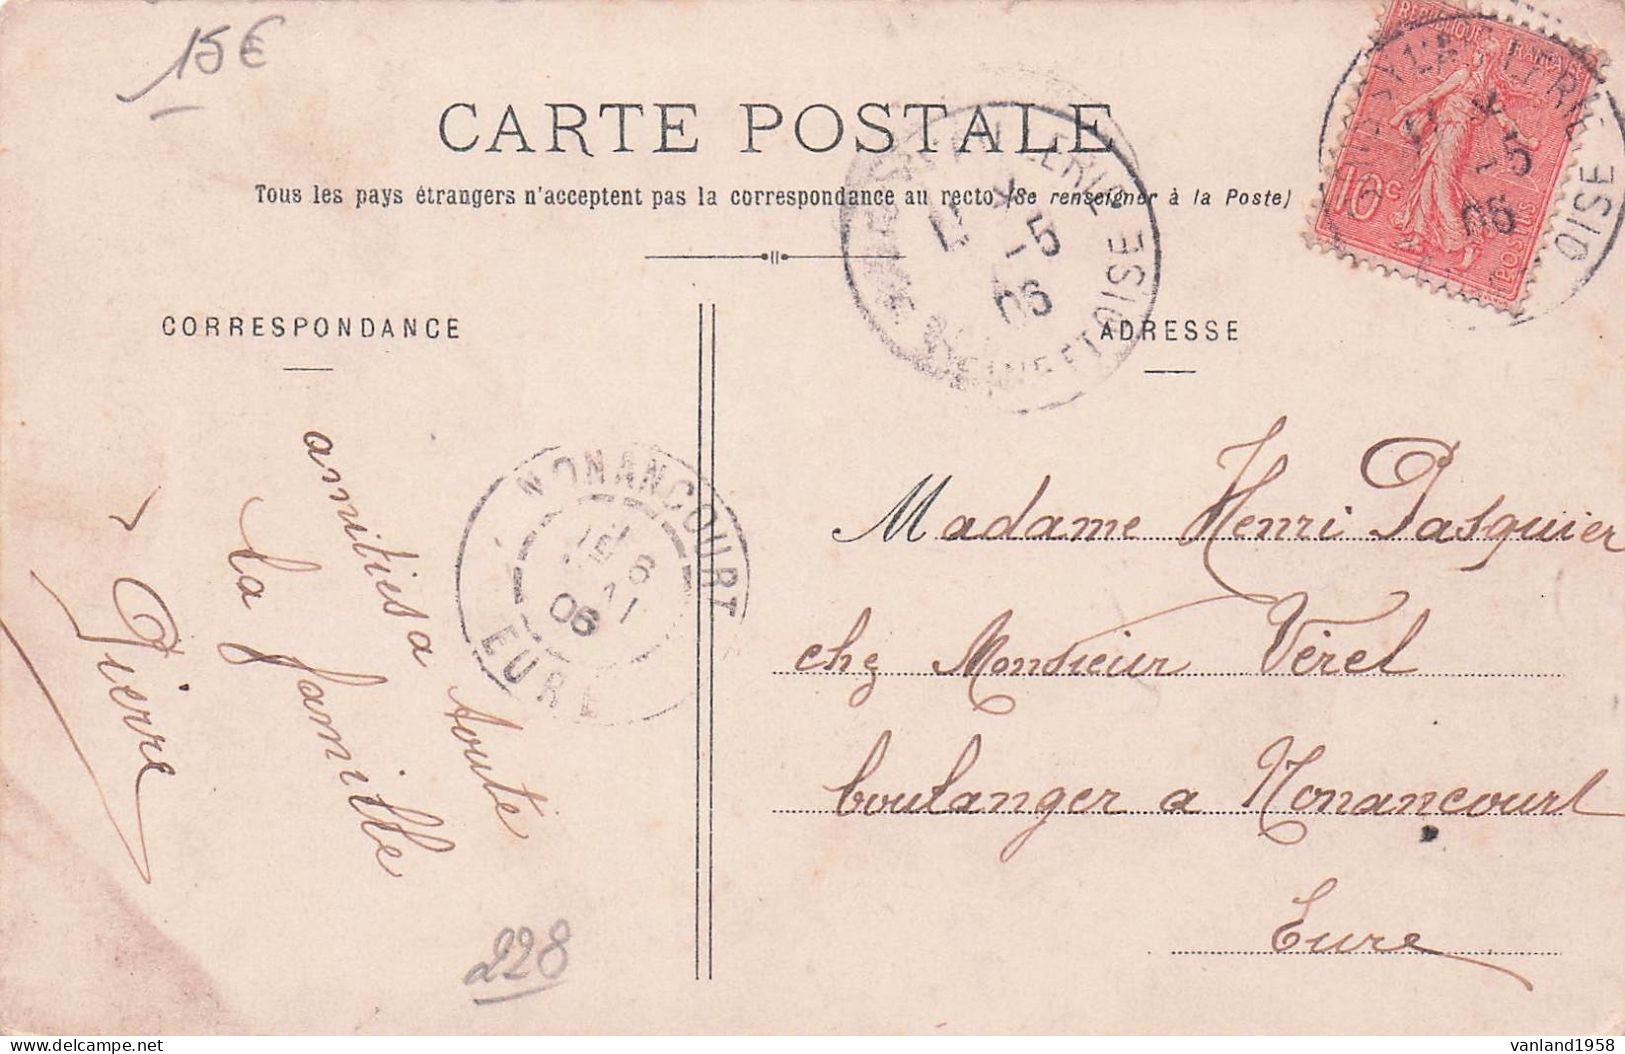 15€
CARTE POSTALE
Tous les pays étrangers n'acceptent pas la correspondance au recto (Se renseigner à la Poste)
CORRESPONDANCE
ADRESSE
REPUBLIQUE FRANÇAISE
10c
POSTES
OISE
-5
06
-5
06
SEINE ET OISE
NONANCOURT
06
EURE
amitiés a toute
la famille
Pierre
228
Madame Henri Pasquier
chez Monsieur Vérel
boulanger a Nonancourt
Eure
vanland1958